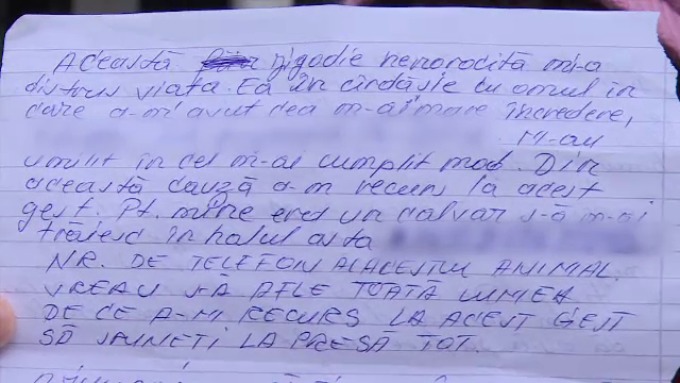 Această jigodie nenorocită mi-a
distrus viata. Ea în cîrdășie cu omul în
care a-m avut cea m-ai mare încredere,
M-au
umilit în cel m-ai cumplit mod. Din
această cauză a-m recurs la acest
gest. Pt. mine era un calvar s-ă m-ai
trăiesc în halul asta
NR. DE TELEFON AL ACESTUI ANIMAL.
VREAU S-Ă AFLE TOATĂ LUMEA
DE CE A-M RECURS LA ACEST GEST
SĂ SPUNEȚI LA PRESĂ TOT.